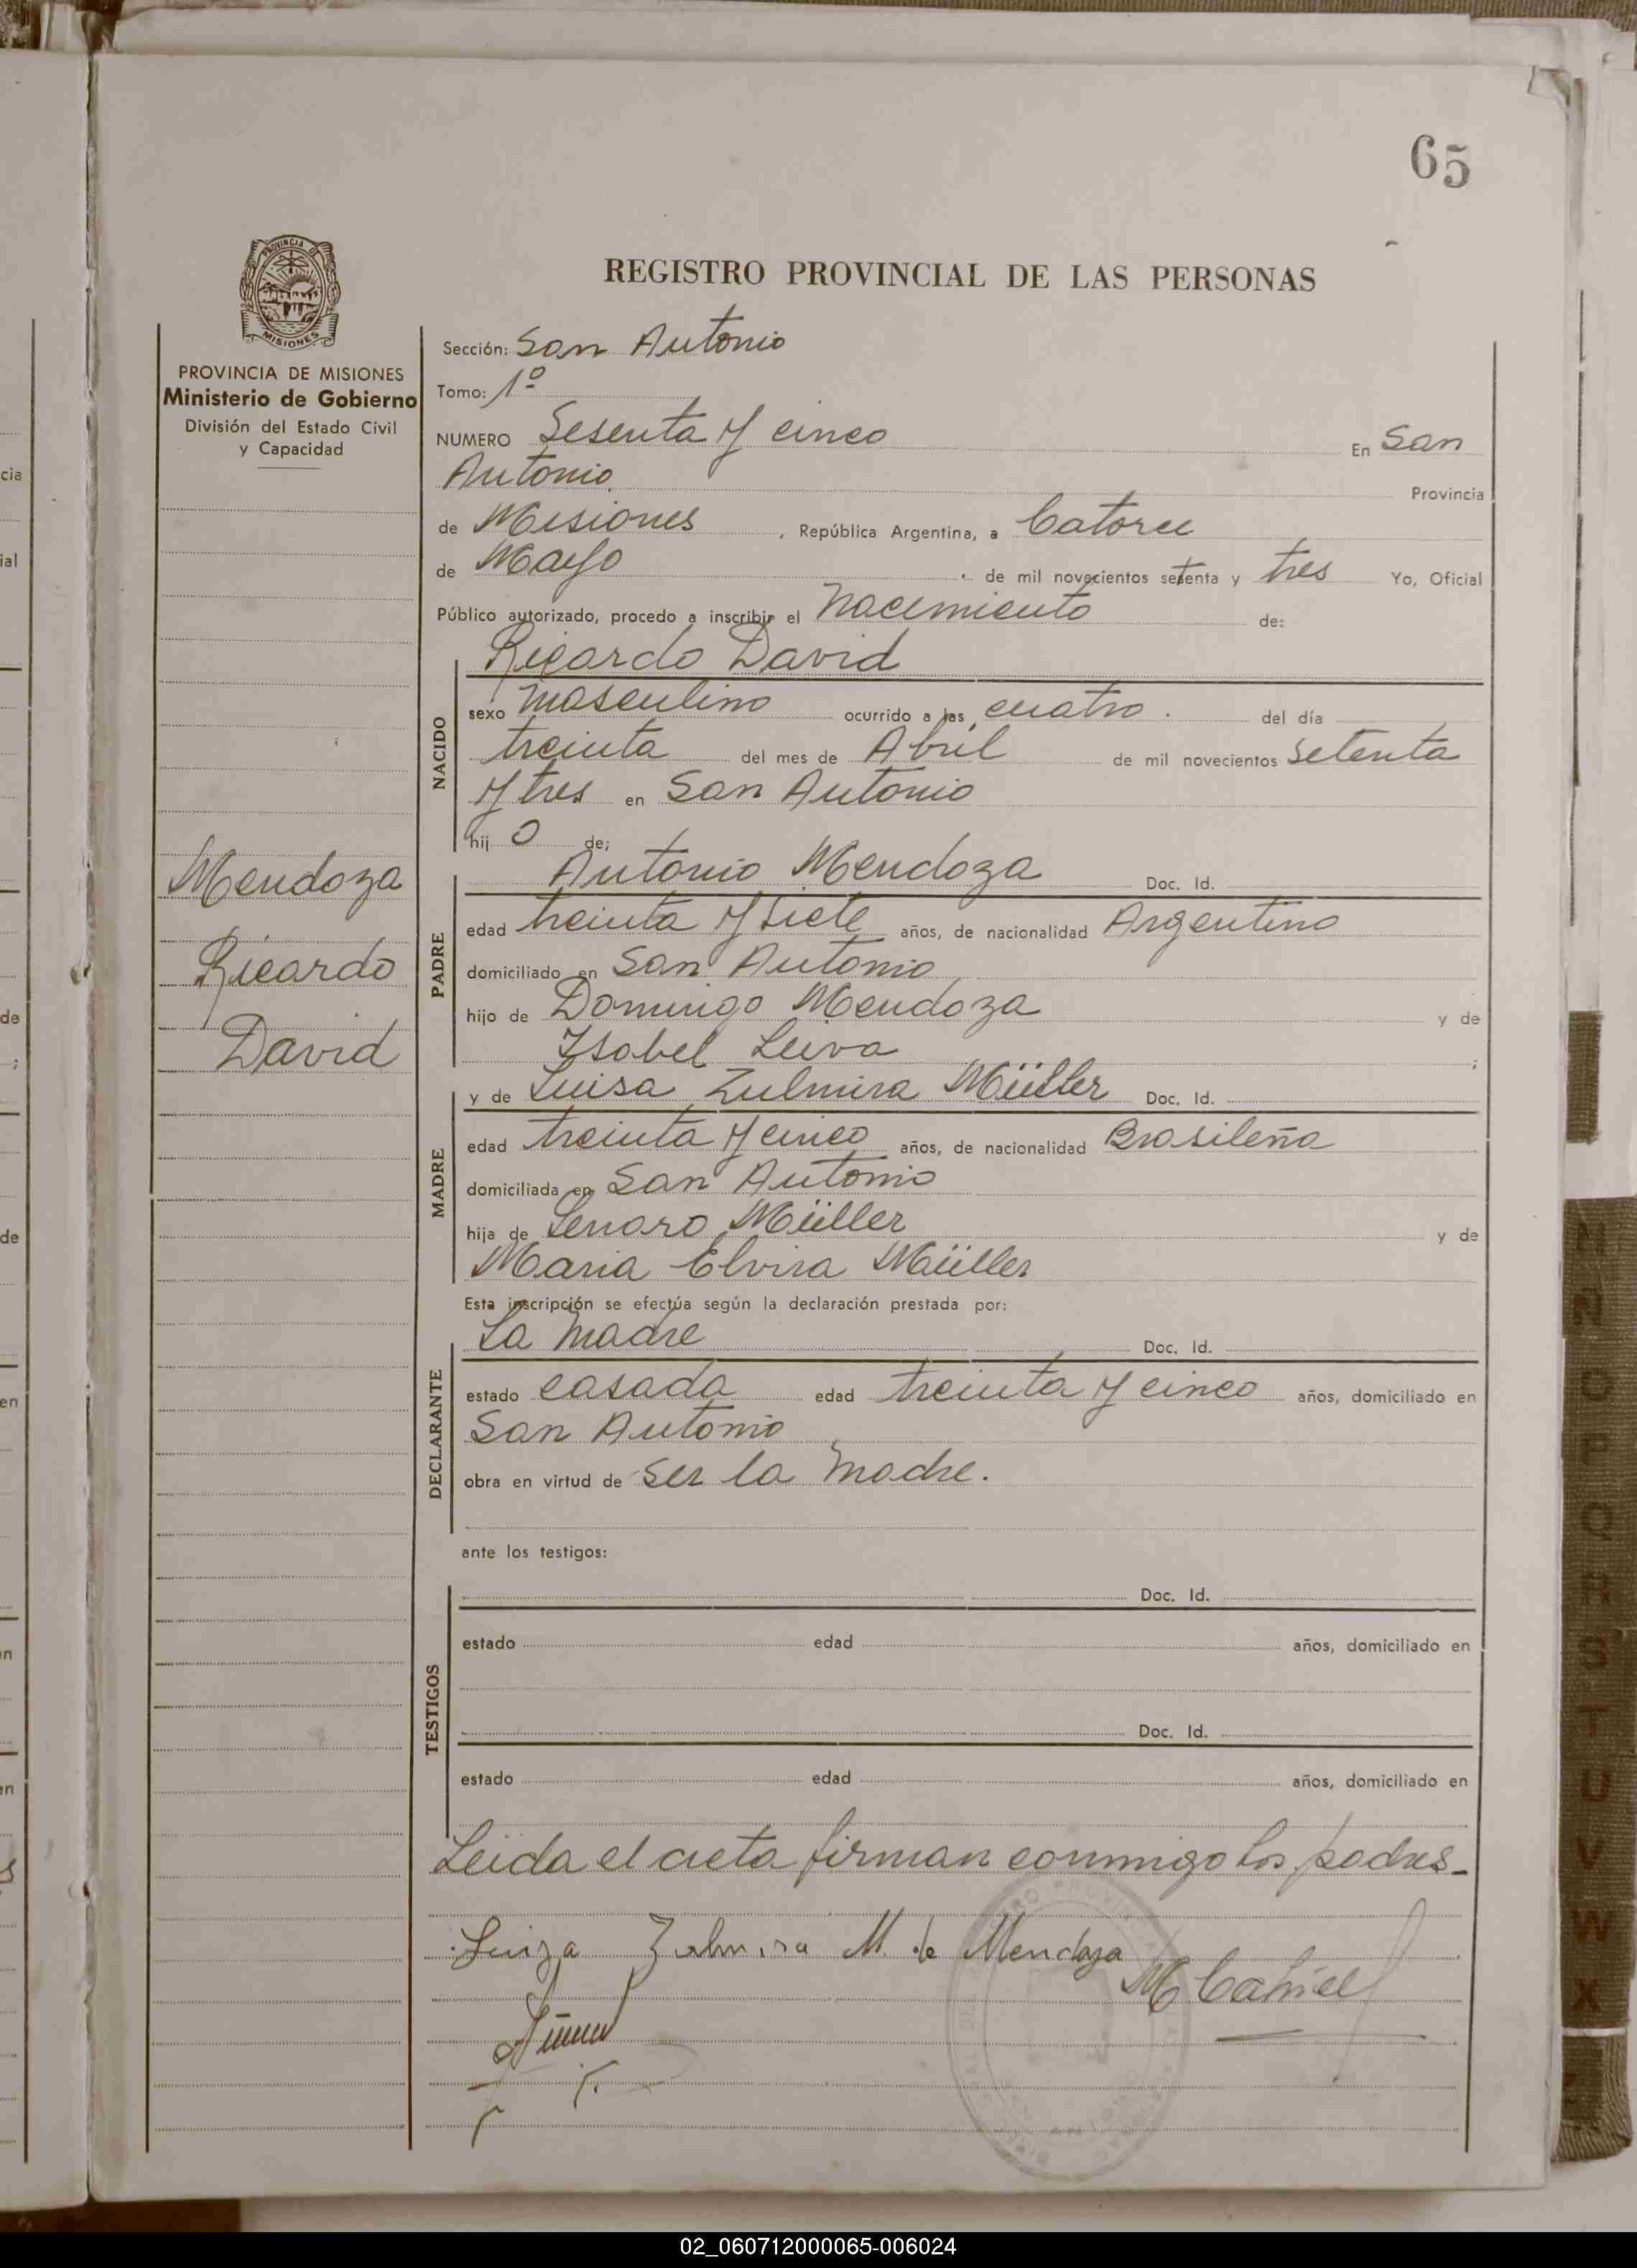 65
REGISTRO PROVINCIAL DE LAS PERSONAS
PROVINCIA DE MISIONES
Ministerio de Gobierno
División del Estado Civil
y Capacidad
Mendoza
Ricardo
David
Sección: San Antonio
Tomo: 1º
NUMERO Sesenta y cinco En San
Antonio Provincia
de Misiones, República Argentina, a Catorce
de Mayo de mil novecientos setenta y tres Yo, Oficial
Público autorizado, procedo a inscribir el Nacimiento de:
Ricardo David
NACIDO
sexo masculino ocurrido a las cuatro. del día
treinta del mes de Abril de mil novecientos setenta
y tres en San Antonio
hijo de;
PADRE
Antonio Mendoza Doc. Id.
edad treinta y siete años, de nacionalidad Argentino
domiciliado en San Antonio
hijo de Domingo Mendoza y de
Isabel Leiva ;
MADRE
y de Luisa Zulmira Müller Doc. Id.
edad treinta y cinco años, de nacionalidad Brasileña
domiciliada en San Antonio
hija de Lenoro Müller y de
Maria Elvira Müller
Esta inscripción se efectúa según la declaración prestada por:
DECLARANTE
La madre Doc. Id.
estado casada edad treinta y cinco años, domiciliado en
San Antonio
obra en virtud de ser la madre.
ante los testigos:
TESTIGOS
Doc. Id.
estado edad años, domiciliado en
Doc. Id.
estado edad años, domiciliado en
Leida el acta firman conmigo los padres-
Luiza Zulmira M. de Mendoza
02_060712000065-006024